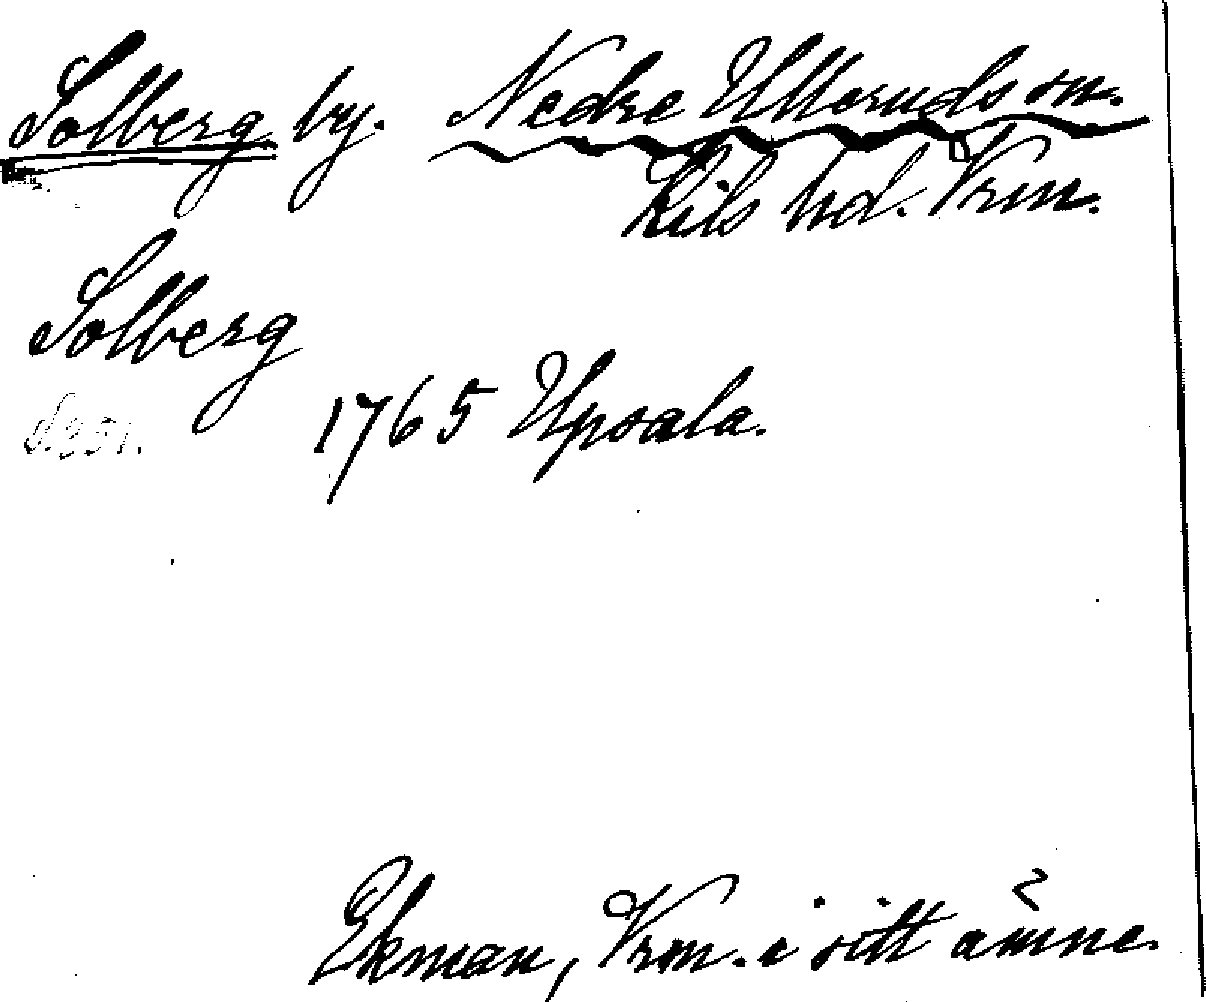 Solberg by. Nedre Ulleruds sn.
Kils hd. Vrm.
Solberg
1765 Upsala.
Ekman, Vrm. i sitt ämne.